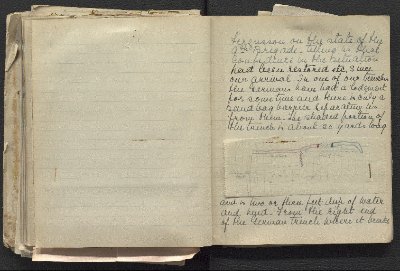 Fergusson on the state of the
9th Brigade. Telling us that
confidence in the situation
had been restored etc. since
our arrival. In one of our trenches
the Germans have had a lodgment
for some time and there is only a
sand bag barrier separating us
from them. The shared portion of
the trench is about 20 yards long
and is two or three feet deep of water
and mud. From the right end
of the German trench where it breaks